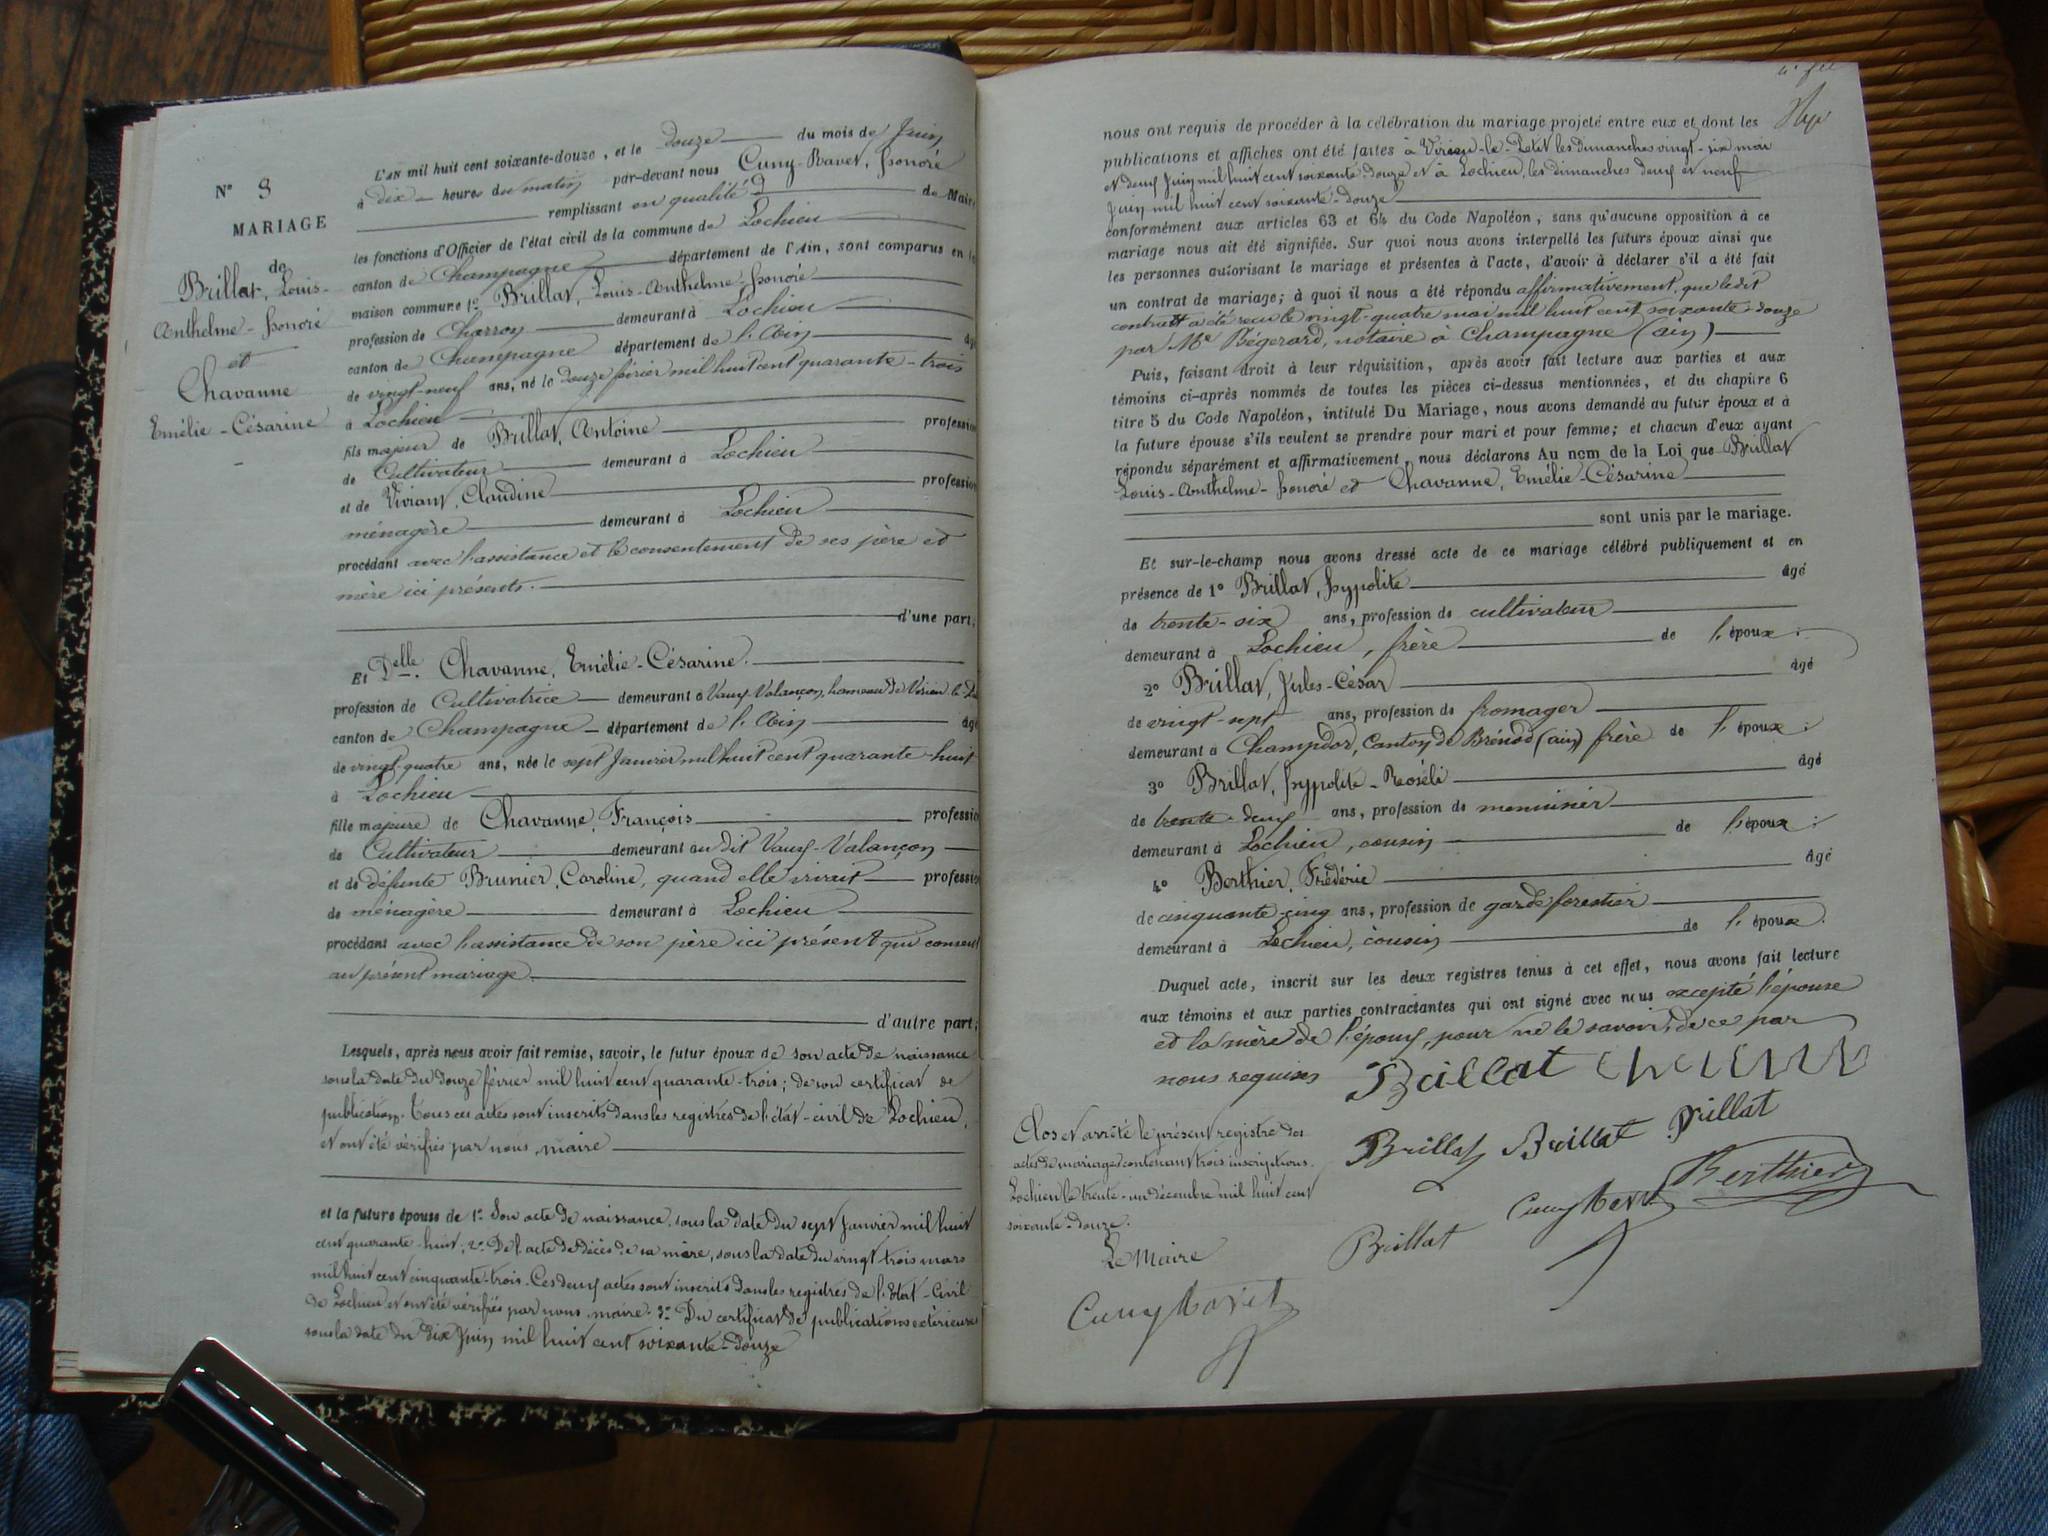 N° 3
MARIAGE
de
Brillat, Louis-
Anthelme-honoré
et
Chavanne
Emélie-Césarine
L'AN mil huit cent soixante-douze, et le douze du mois de Juin
à dix heures du matin par-devant nous Cuny-Ravet, honoré
remplissant en qualité de Maire
les fonctions d'Officier de l'état civil de la commune de Lochieu
canton de Champagne département de l'Ain, sont comparus en la
maison commune 1° Brillat, Louis-Anthelme-honoré
profession de Charron demeurant à Lochieu
canton de Champagne département de l'Ain âgé
de vingt-neuf ans, né le douze février mil huit cent quarante-trois
à Lochieu
fils majeur de Brillat, Antoine profession
de Cultivateur demeurant à Lochieu
et de Viviant, Claudine profession
ménagère demeurant à Lochieu
procédant avec l'assistance et le consentement de ses père et
mère ici présents.
d'une part;
Et Delle. Chavanne, Emélie-Césarine.
profession de Cultivatrice demeurant à Vaux-Valançon, hameau de Virieu-le-
canton de Champagne département de l'Ain âgé
de vingt-quatre ans, née le sept Janvier mil huit cent quarante-huit
à Lochieu
fille majeure de Chavanne, François profession
de Cultivateur demeurant au dit Vaux-Valançon
et de défunte Brunier, Caroline, quand elle vivait profession
de ménagère demeurant à Lochieu
procédant avec l'assistance de son père ici présent qui consent
au présent mariage
d'autre part;
Lesquels, après nous avoir fait remise, savoir, le futur époux de son acte de naissance
sous la date du douze février mil huit cent quarante-trois; de son certificat de
publication. Tous ces actes sont inscrits dans les registres de l'état-civil de Lochieu,
et ont été vérifiés par nous, maire
et la future épouse de 1° Son acte de naissance, sous la date du sept Janvier mil huit
cent quarante-huit, 2° De l'acte de décès de sa mère, sous la date du vingt trois mars
mil huit cent cinquante-trois. Ces deux actes sont inscrits dans les registres de l'Etat-Civil
de Lochieu et ont été vérifiés par nous, maire. 3° Du certificat de publications extérieures
sous la date du dix Juin mil huit cent soixante-douze
nous ont requis de procéder à la célébration du mariage projeté entre eux et dont les
publications et affiches ont été faites à Virieu-le-Petit les dimanches vingt-six mai
et deux Juin mil huit cent soixante-douze et à Lochieu, les dimanches deux et neuf
Juin mil huit cent soixante-douze
conformément aux articles 63 et 64 du Code Napoléon, sans qu'aucune opposition à ce
mariage nous ait été signifiée. Sur quoi nous avons interpellé les futurs époux ainsi que
les personnes autorisant le mariage et présentes à l'acte, d'avoir à déclarer s'il a été fait
un contrat de mariage; à quoi il nous a été répondu affirmativement, que ledit
contrat a été reçu le vingt-quatre mai mil huit cent soixante-douze
par Me Bégerard, notaire à Champagne (ain)
Puis, faisant droit à leur réquisition, après avoir fait lecture aux parties et aux
témoins ci-après nommés de toutes les pièces ci-dessus mentionnées, et du chapitre 6
titre 5 du Code Napoléon, intitulé Du Mariage, nous avons demandé au futur époux et à
la future épouse s'ils veulent se prendre pour mari et pour femme; et chacun d'eux ayant
répondu séparément et affirmativement, nous déclarons Au nom de la Loi que Brillat
Louis-Anthelme-honoré et Chavanne, Emélie-Césarine
sont unis par le mariage.
Et sur-le-champ nous avons dressé acte de ce mariage célébré publiquement et en
présence de 1° Brillat, hypolite âgé
de trente-six ans, profession de cultivateur
demeurant à Lochieu, frère de l'époux.
2° Brillat, Jules-César âgé
de vingt-sept ans, profession de fromager
demeurant à Champdor, Canton de Brénod (ain) frère de l'époux.
3° Brillat, hyppolite-Roséli âgé
de trente-deux ans, profession de menuisier
demeurant à Lochieu, cousin de l'époux.
4° Berthier, Frédéric âgé
de cinquante-cinq ans, profession de garde forestier
demeurant à Lochieu, cousin de l'époux.
Duquel acte, inscrit sur les deux registres tenus à cet effet, nous avons fait lecture
aux témoins et aux parties contractantes qui ont signé avec nous excepté l'épouse
et la mère de l'époux, pour ne le savoir, de ce par
nous requises Brillat
Brillat Brillat Brillat
Berthier
Brillat
Clos et arrêté le présent registre des
actes de mariages contenant trois inscriptions.
Lochieu le trente-un décembre mil huit cent
soixante-douze.
Le Maire
Cuny Ravet